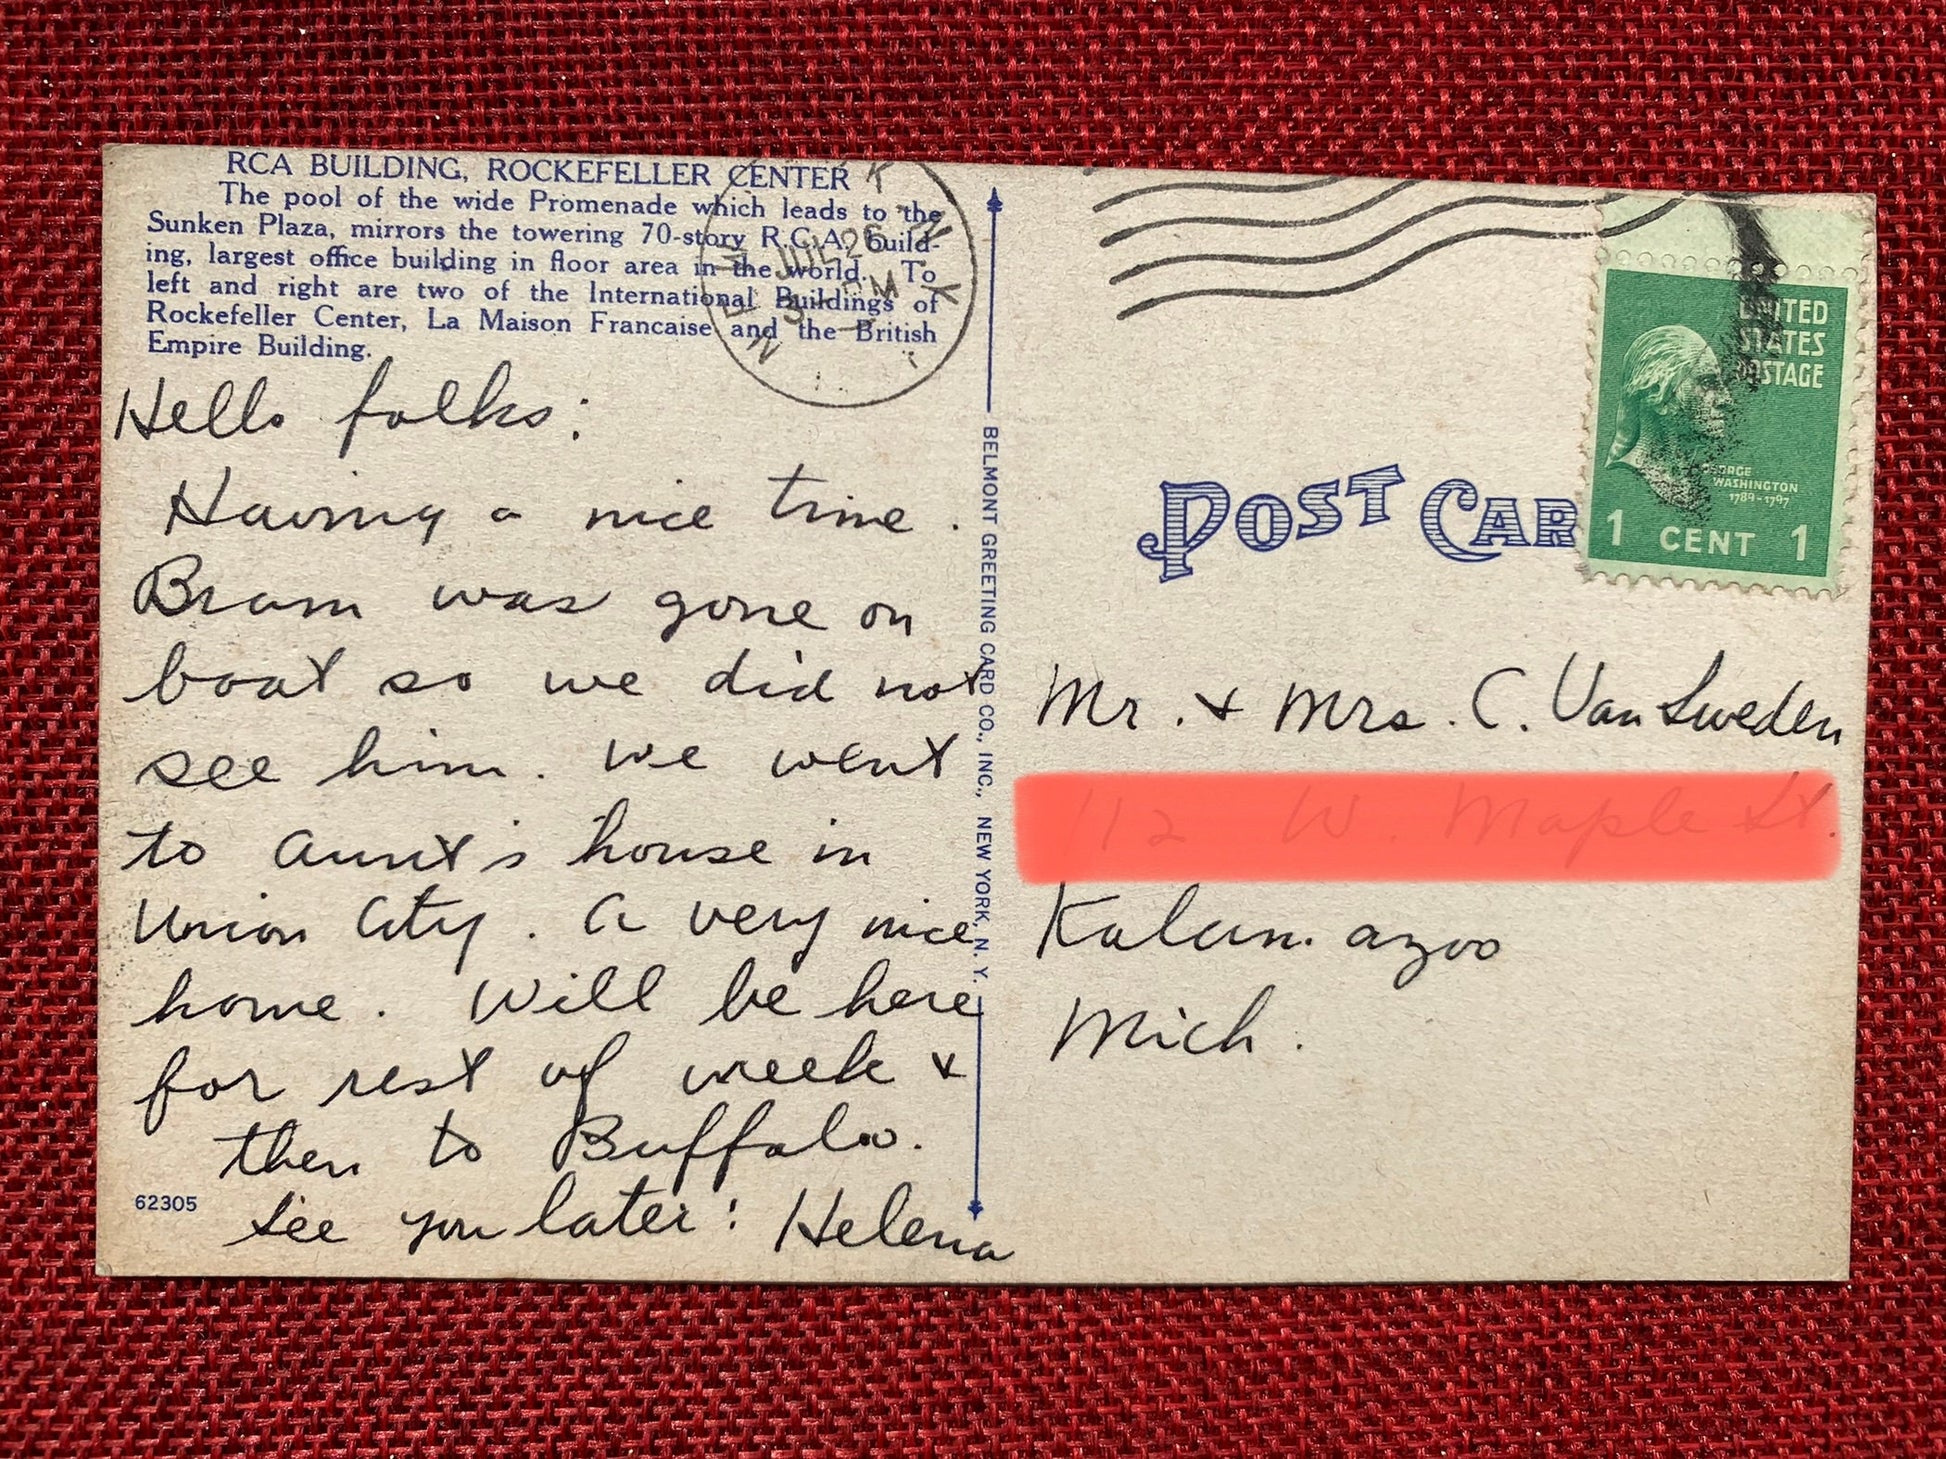 RCA BUILDING, ROCKEFELLER CENTER
The pool of the wide Promenade which leads to the
Sunken Plaza, mirrors the towering 70-story R.C.A. build-
ing, largest office building in floor area in the world. To
left and right are two of the International Buildings of
Rockefeller Center, La Maison Francaise and the British
Empire Building.
JUL 26
PM
Hello folks:
Having a nice time.
Bram was gone on
boat so we did not
see him. We went
to Aunt's house in
Union City. A very nice
home. Will be here
for rest of week &
then to Buffalo.
See you later: Helena
62305
BELMONT GREETING CARD CO., INC., NEW YORK, N. Y.
UNITED
STATES
POSTAGE
GEORGE
WASHINGTON
1789-1797
1 CENT 1
POST CAR
Mr. & Mrs. C. Van Sweden
Kalamazoo
Mich.